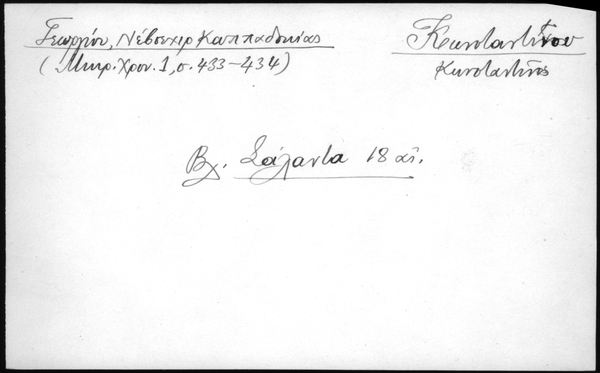 Γεωργίου, Νέβσεχιρ Καππαδοκίας
(Μικρ. Χρον. 1, σ. 433-434)
Κωνσταντίνου
Κωνσταντῖνος
Βχ. Σάλαντα 18 αἰ.